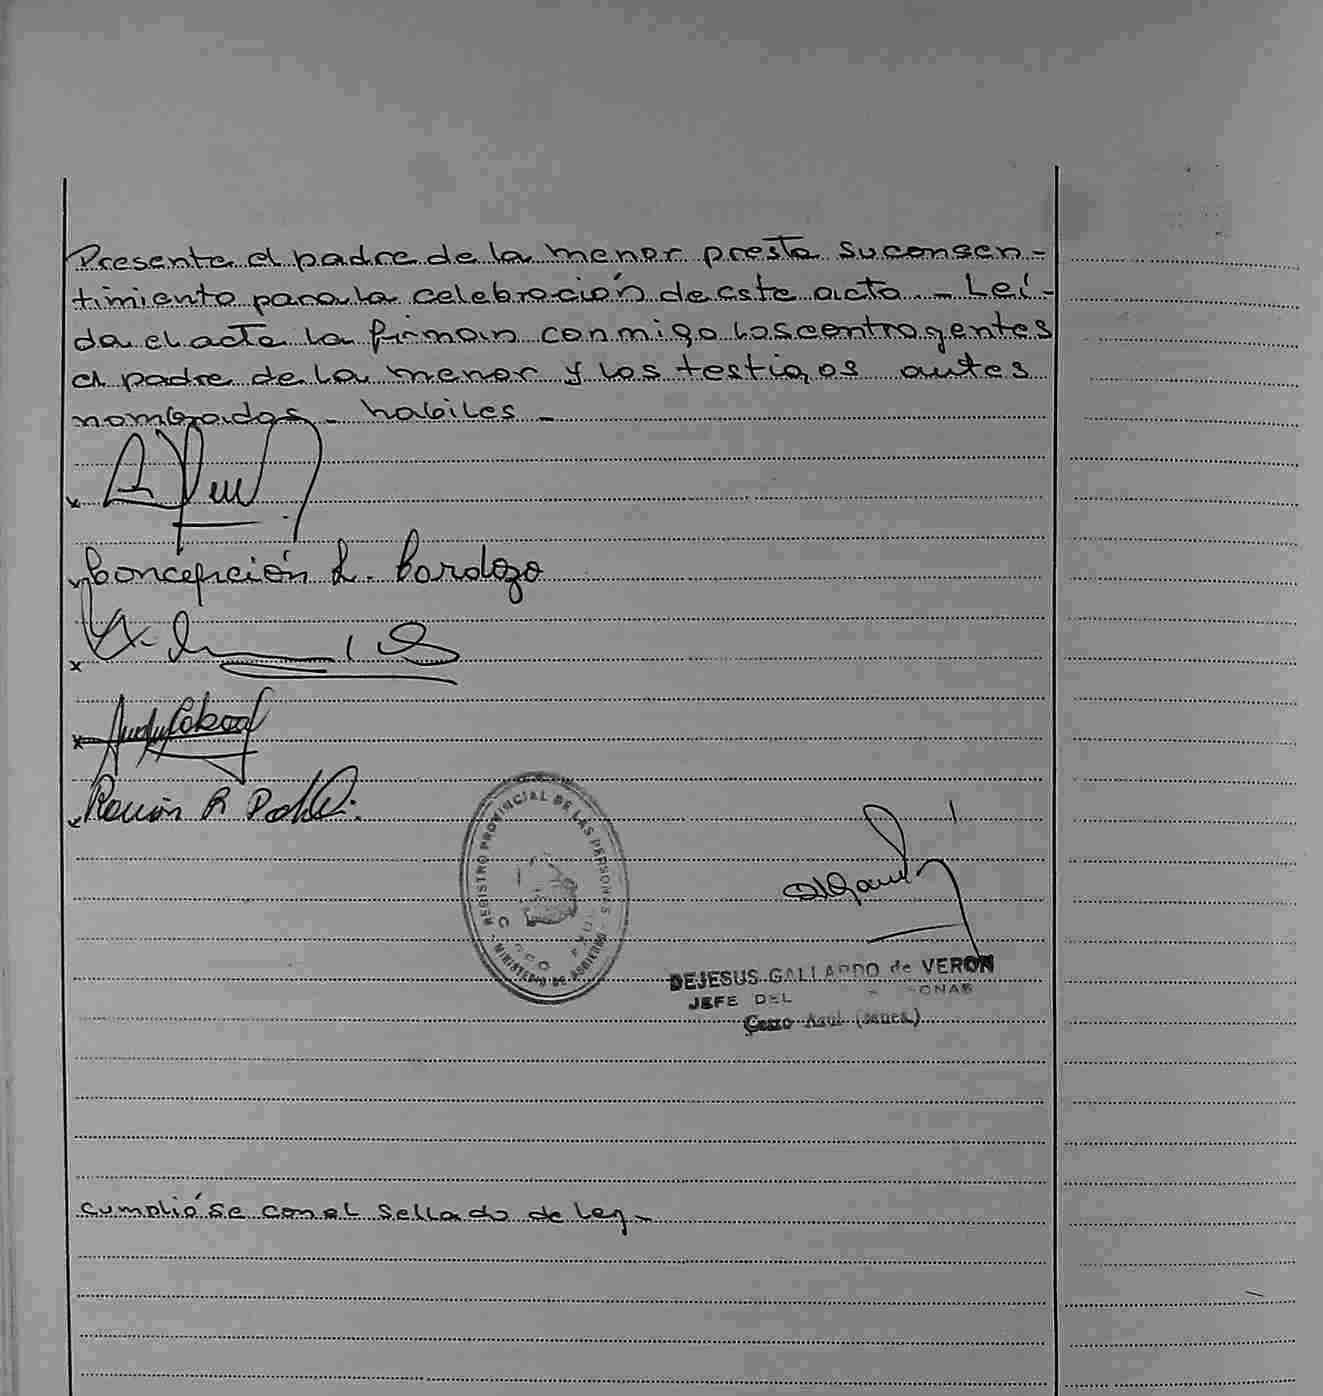 Presente el padre de la menor presta su consen-
timiento para la celebración de este acto. - Leí-
da el acta la firman conmigo los contrayentes
el padre de la menor y los testigos antes
nombrados - habiles -
Concepción R. Cardozo
Ramón R
REGISTRO PROVINCIAL DE LAS PERSONAS
MINISTERIO DE GOBIERNO
DEJESUS GALLARDO de VERON
JEFE DEL
Cerro Azul (Mnes.)
Cumplióse con el sellado de ley -